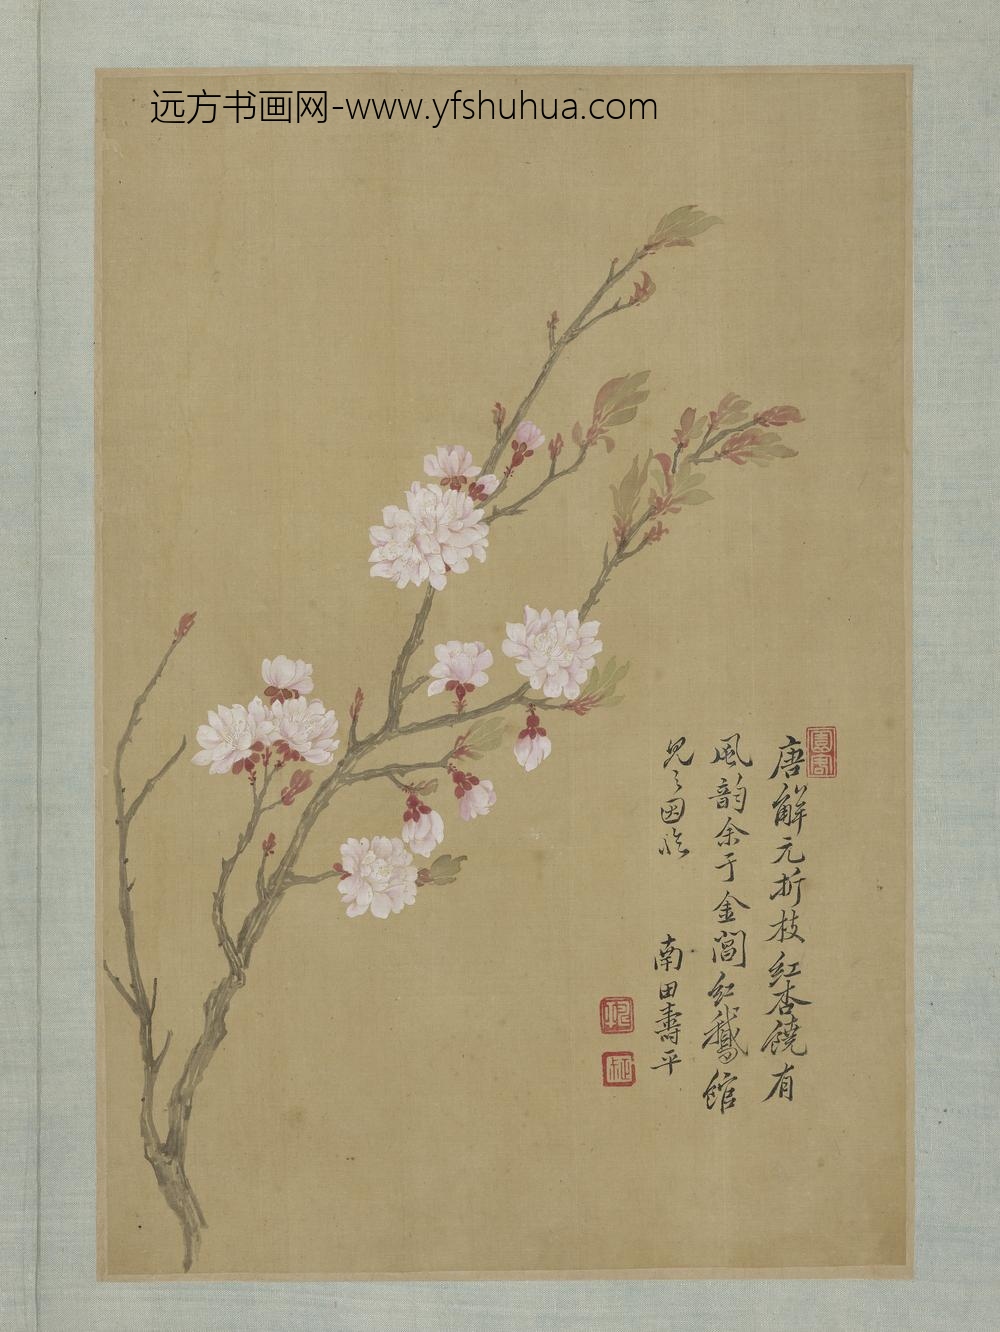 远方书画网-www.yfshuhua.com
唐解元折枝红杏饶有
風韵余于金閶红鵝館
見之因临
南田壽平